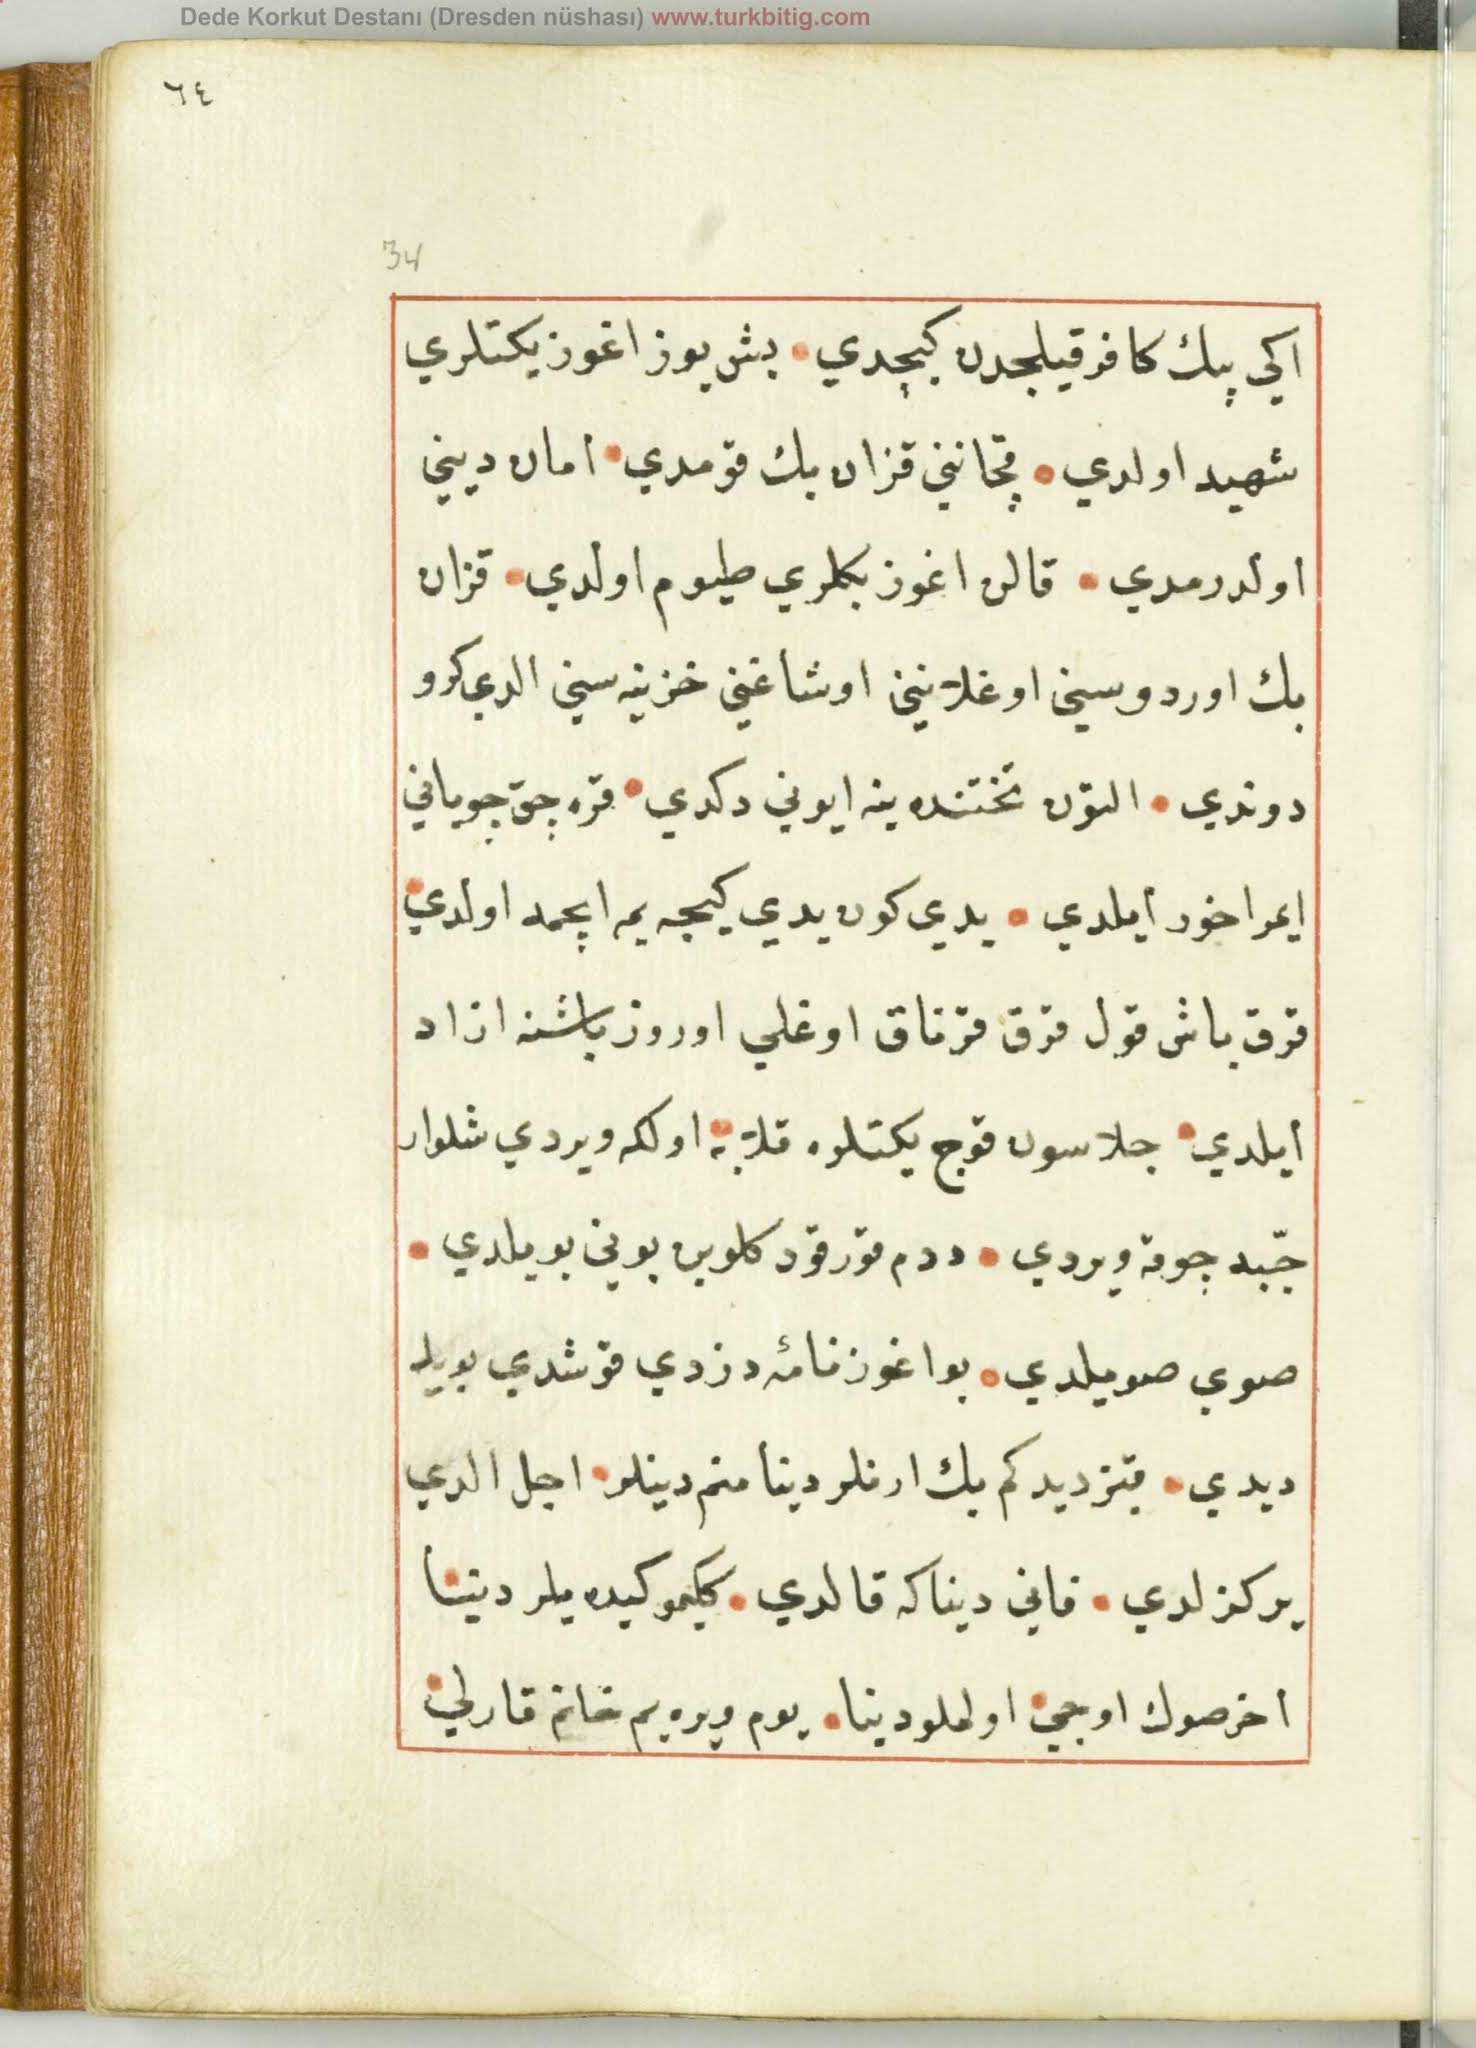 Dede Korkut Destanı (Dresden nüshası) www.turkbitig.com
٦٤
34
اكي بيك كافر قيلجدن كيچدي • بش يوز اغوز يكتلري
شهيد اولدي • قچانني قزان بك قومدي • امان ديني
اولدرمدي • قالن اغوز بكلري طيوم اولدي • قزان
بك اوردوسني اوغلانني اوشاغني خزينه سني الدي كرو
دوندي • التون تختنده ينه ايوني دكدي • قره جق چوباني
ايمراخور أيلدي • يدي كون يدي كيجه يمه ايچمه اولدي •
قرق باش قول قرق قرناق اوغلي اوروز باشنه ازاد
أيلدي • جلاسون قوج يكتلره قلابه اولكه ويردي شلوار
جبّه چوقه ويردي • ددم قورقود كلوبن بوي بويلدي •
صوي صويلدي • بو اغوزنامهٔ دزدي قوشدي بويله
ديدي • قنز ديدكم بك ارنلر دينا منم دينلر • اجل الدي
ير كزلدي • فاني دينا كه قالدي • كلملو كيدملر دينا
اخر صوك اوجي • اولملو دينا • يوم ويره يم خانم قارلي •